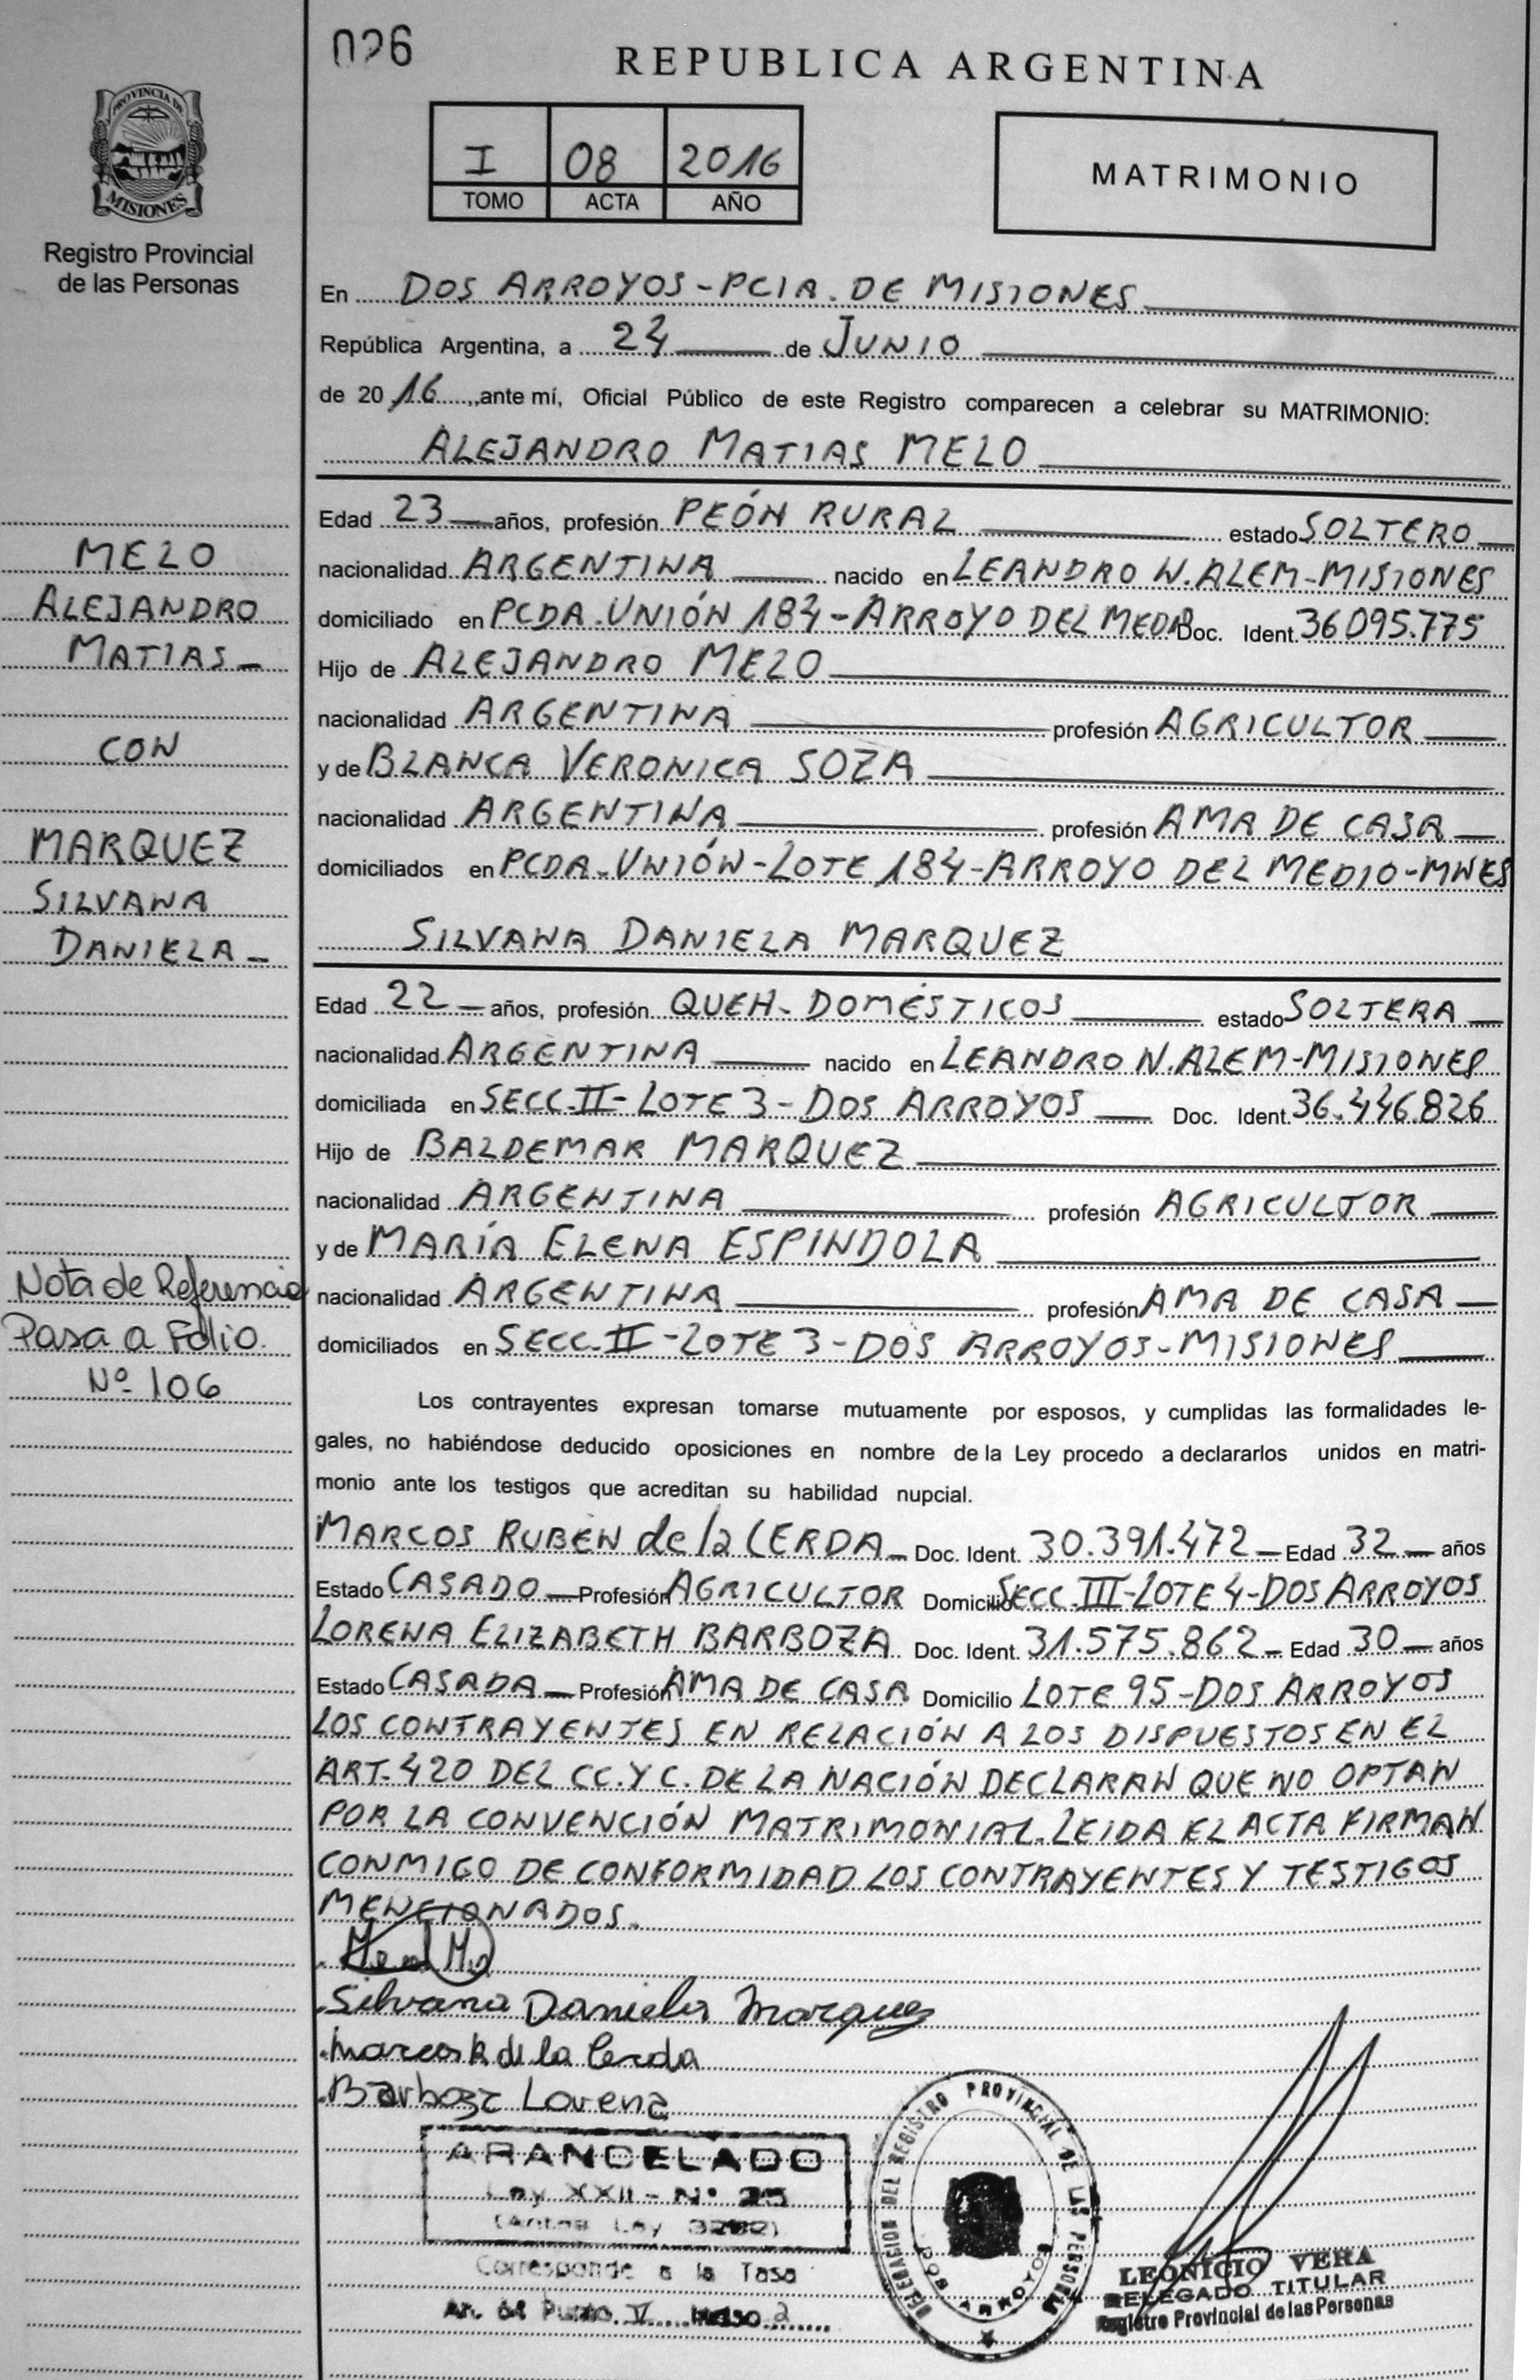 026
REPUBLICA ARGENTINA
PROVINCIA DE
MISIONES
Registro Provincial
de las Personas
I 08 2016
TOMO ACTA AÑO
MATRIMONIO
En DOS ARROYOS-PCIA. DE MISIONES
República Argentina, a 24 de JUNIO
de 2016, ante mí, Oficial Público de este Registro comparecen a celebrar su MATRIMONIO:
ALEJANDRO MATIAS MELO
Edad 23 años, profesión PEÓN RURAL estado SOLTERO
nacionalidad ARGENTINA nacido en LEANDRO N. ALEM-MISIONES
domiciliado en PCDA. UNIÓN 184-ARROYO DEL MEDIO Doc. Ident. 36095.775
Hijo de ALEJANDRO MELO
nacionalidad ARGENTINA profesión AGRICULTOR
y de BLANCA VERONICA SOZA
nacionalidad ARGENTINA profesión AMA DE CASA
domiciliados en PCDA. UNIÓN-LOTE 184-ARROYO DEL MEDIO-MNES
SILVANA DANIELA MARQUEZ
Edad 22 años, profesión QUEH. DOMÉSTICOS estado SOLTERA
nacionalidad ARGENTINA nacido en LEANDRO N. ALEM-MISIONES
domiciliada en SECC. II-LOTE 3-DOS ARROYOS Doc. Ident. 36.446.826
Hijo de BALDEMAR MARQUEZ
nacionalidad ARGENTINA profesión AGRICULTOR
y de MARÍA ELENA ESPINDOLA
nacionalidad ARGENTINA profesión AMA DE CASA
domiciliados en SECC. II-LOTE 3-DOS ARROYOS-MISIONES
MELO
ALEJANDRO
MATIAS-
CON
MARQUEZ
SILVANA
DANIELA-
Nota de Referencia
Pasa a Folio
Nº 106
Los contrayentes expresan tomarse mutuamente por esposos, y cumplidas las formalidades le-
gales, no habiéndose deducido oposiciones en nombre de la Ley procedo a declararlos unidos en matri-
monio ante los testigos que acreditan su habilidad nupcial.
MARCOS RUBEN de la CERDA Doc. Ident. 30.391.472 Edad 32 años
Estado CASADO Profesión AGRICULTOR Domicilio SECC. III-LOTE 4-DOS ARROYOS
LORENA ELIZABETH BARBOZA Doc. Ident. 31.575.862 Edad 30 años
Estado CASADA Profesión AMA DE CASA Domicilio LOTE 95-DOS ARROYOS
LOS CONTRAYENTES EN RELACIÓN A LOS DISPUESTOS EN EL
ART. 420 DEL CC. Y C. DE LA NACIÓN DECLARAN QUE NO OPTAN
POR LA CONVENCIÓN MATRIMONIAL. LEIDA EL ACTA FIRMAN
CONMIGO DE CONFORMIDAD LOS CONTRAYENTES Y TESTIGOS
MENCIONADOS.
Silvana Daniela Marquez
Marcos R de la Cerda
Barboza Lorena
ARANCELADO
Ley XXII - Nº 25
(Antes Ley
Corresponde a la Tasa
Punto V Inciso 2
DELEGACION DEL REGISTRO PROVINCIAL DE LAS PERSONAS
DOS ARROYOS
LEONICIO VERA
DELEGADO TITULAR
Registro Provincial de las Personas